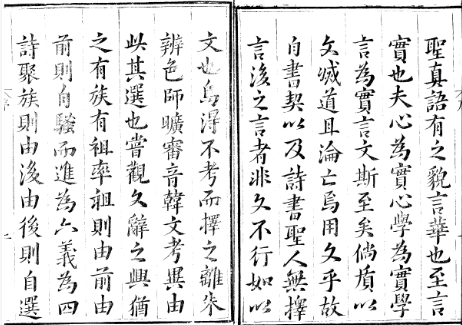 聖真語有之貌言華也至言
實也夫心為實心學為實學
言為實言文斯至矣倘憤以
文滅道且淪亡焉用文乎故
自書契以及詩書聖人無擇
言後之言者非文不行如以
文也烏得不考而擇之離朱
辨色師曠審音韓文考異由
此其選也嘗觀文辭之興猶
之有族有祖率祖則由前由
前則自騷而進為六義為四
詩聚族則由後由後則自選